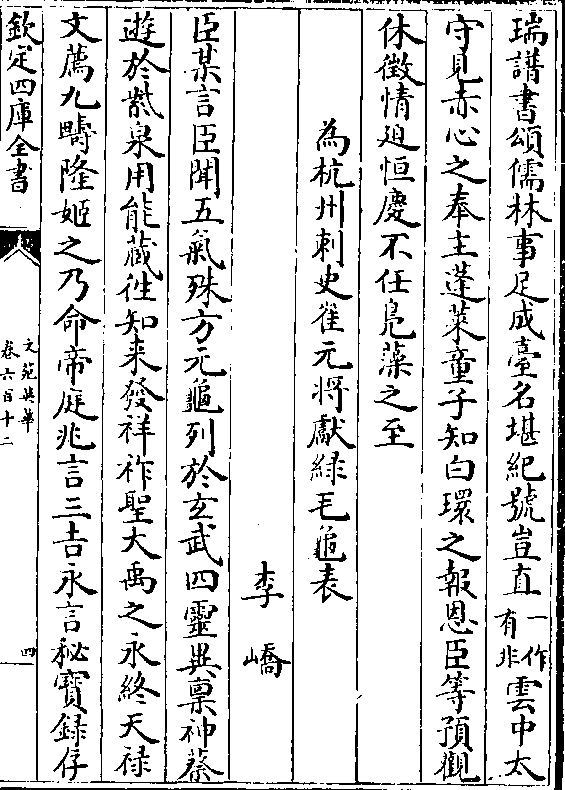 瑞譜書頌儒林事足成臺名堪紀號豈直一作有非雲中太
守見赤心之奉主蓬萊童子知白環之報恩臣等預觀
休徵情廹恒慶不任鳧藻之至
為杭州刺史崔元將獻緑毛龜表
李嶠
臣某言臣聞五氣殊方元龜列於玄武四靈異稟神蔡
遊於紫泉用能藏徃知来發祥祚聖大禹之永終天禄
文薦九疇隆姬之乃命帝庭兆言三吉永言秘寶録存
欽定四庫全書
文苑英華
卷六百十二
四